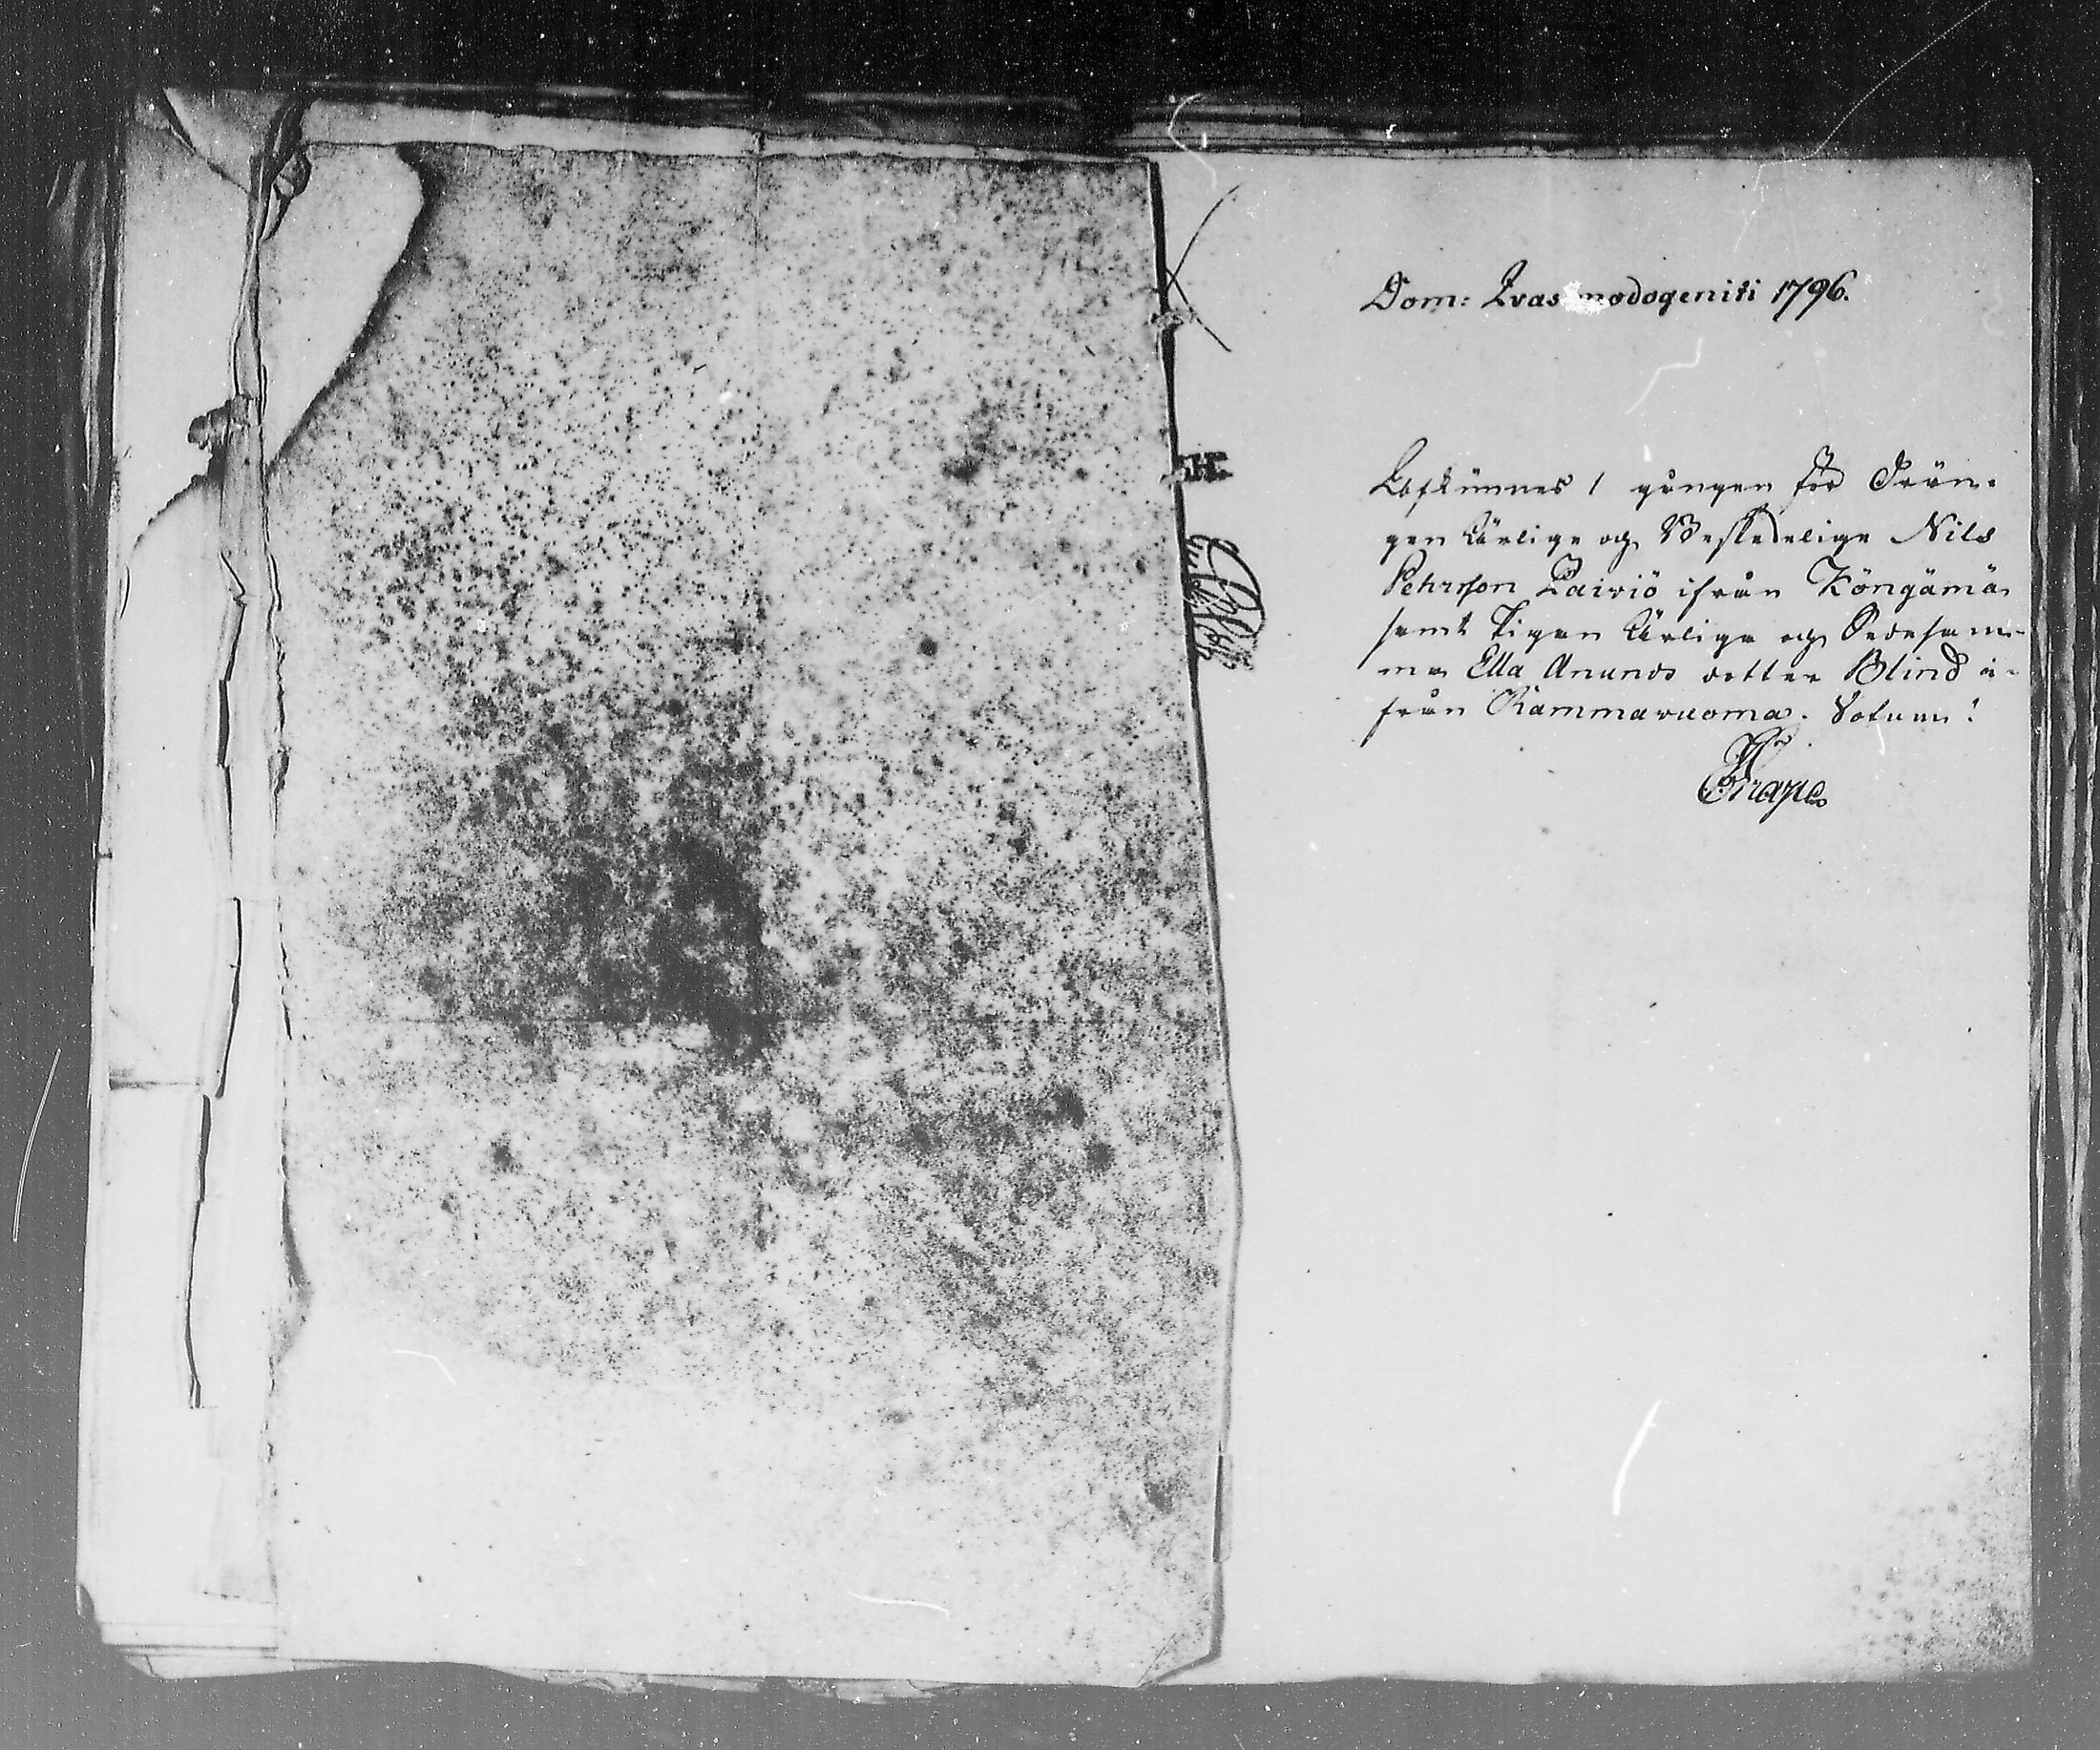 Dom: Qvasimodogeniti 1796.
Afkünnes 1 gången för Drän-
gen Ärlige och Beskedelige Nils
Pehrsson Päiviö ifrån Köngämä
samt Pigan Ärliga och Sedesam-
ma Ella Anunds dotter Blind i-
från Rammavuoma.